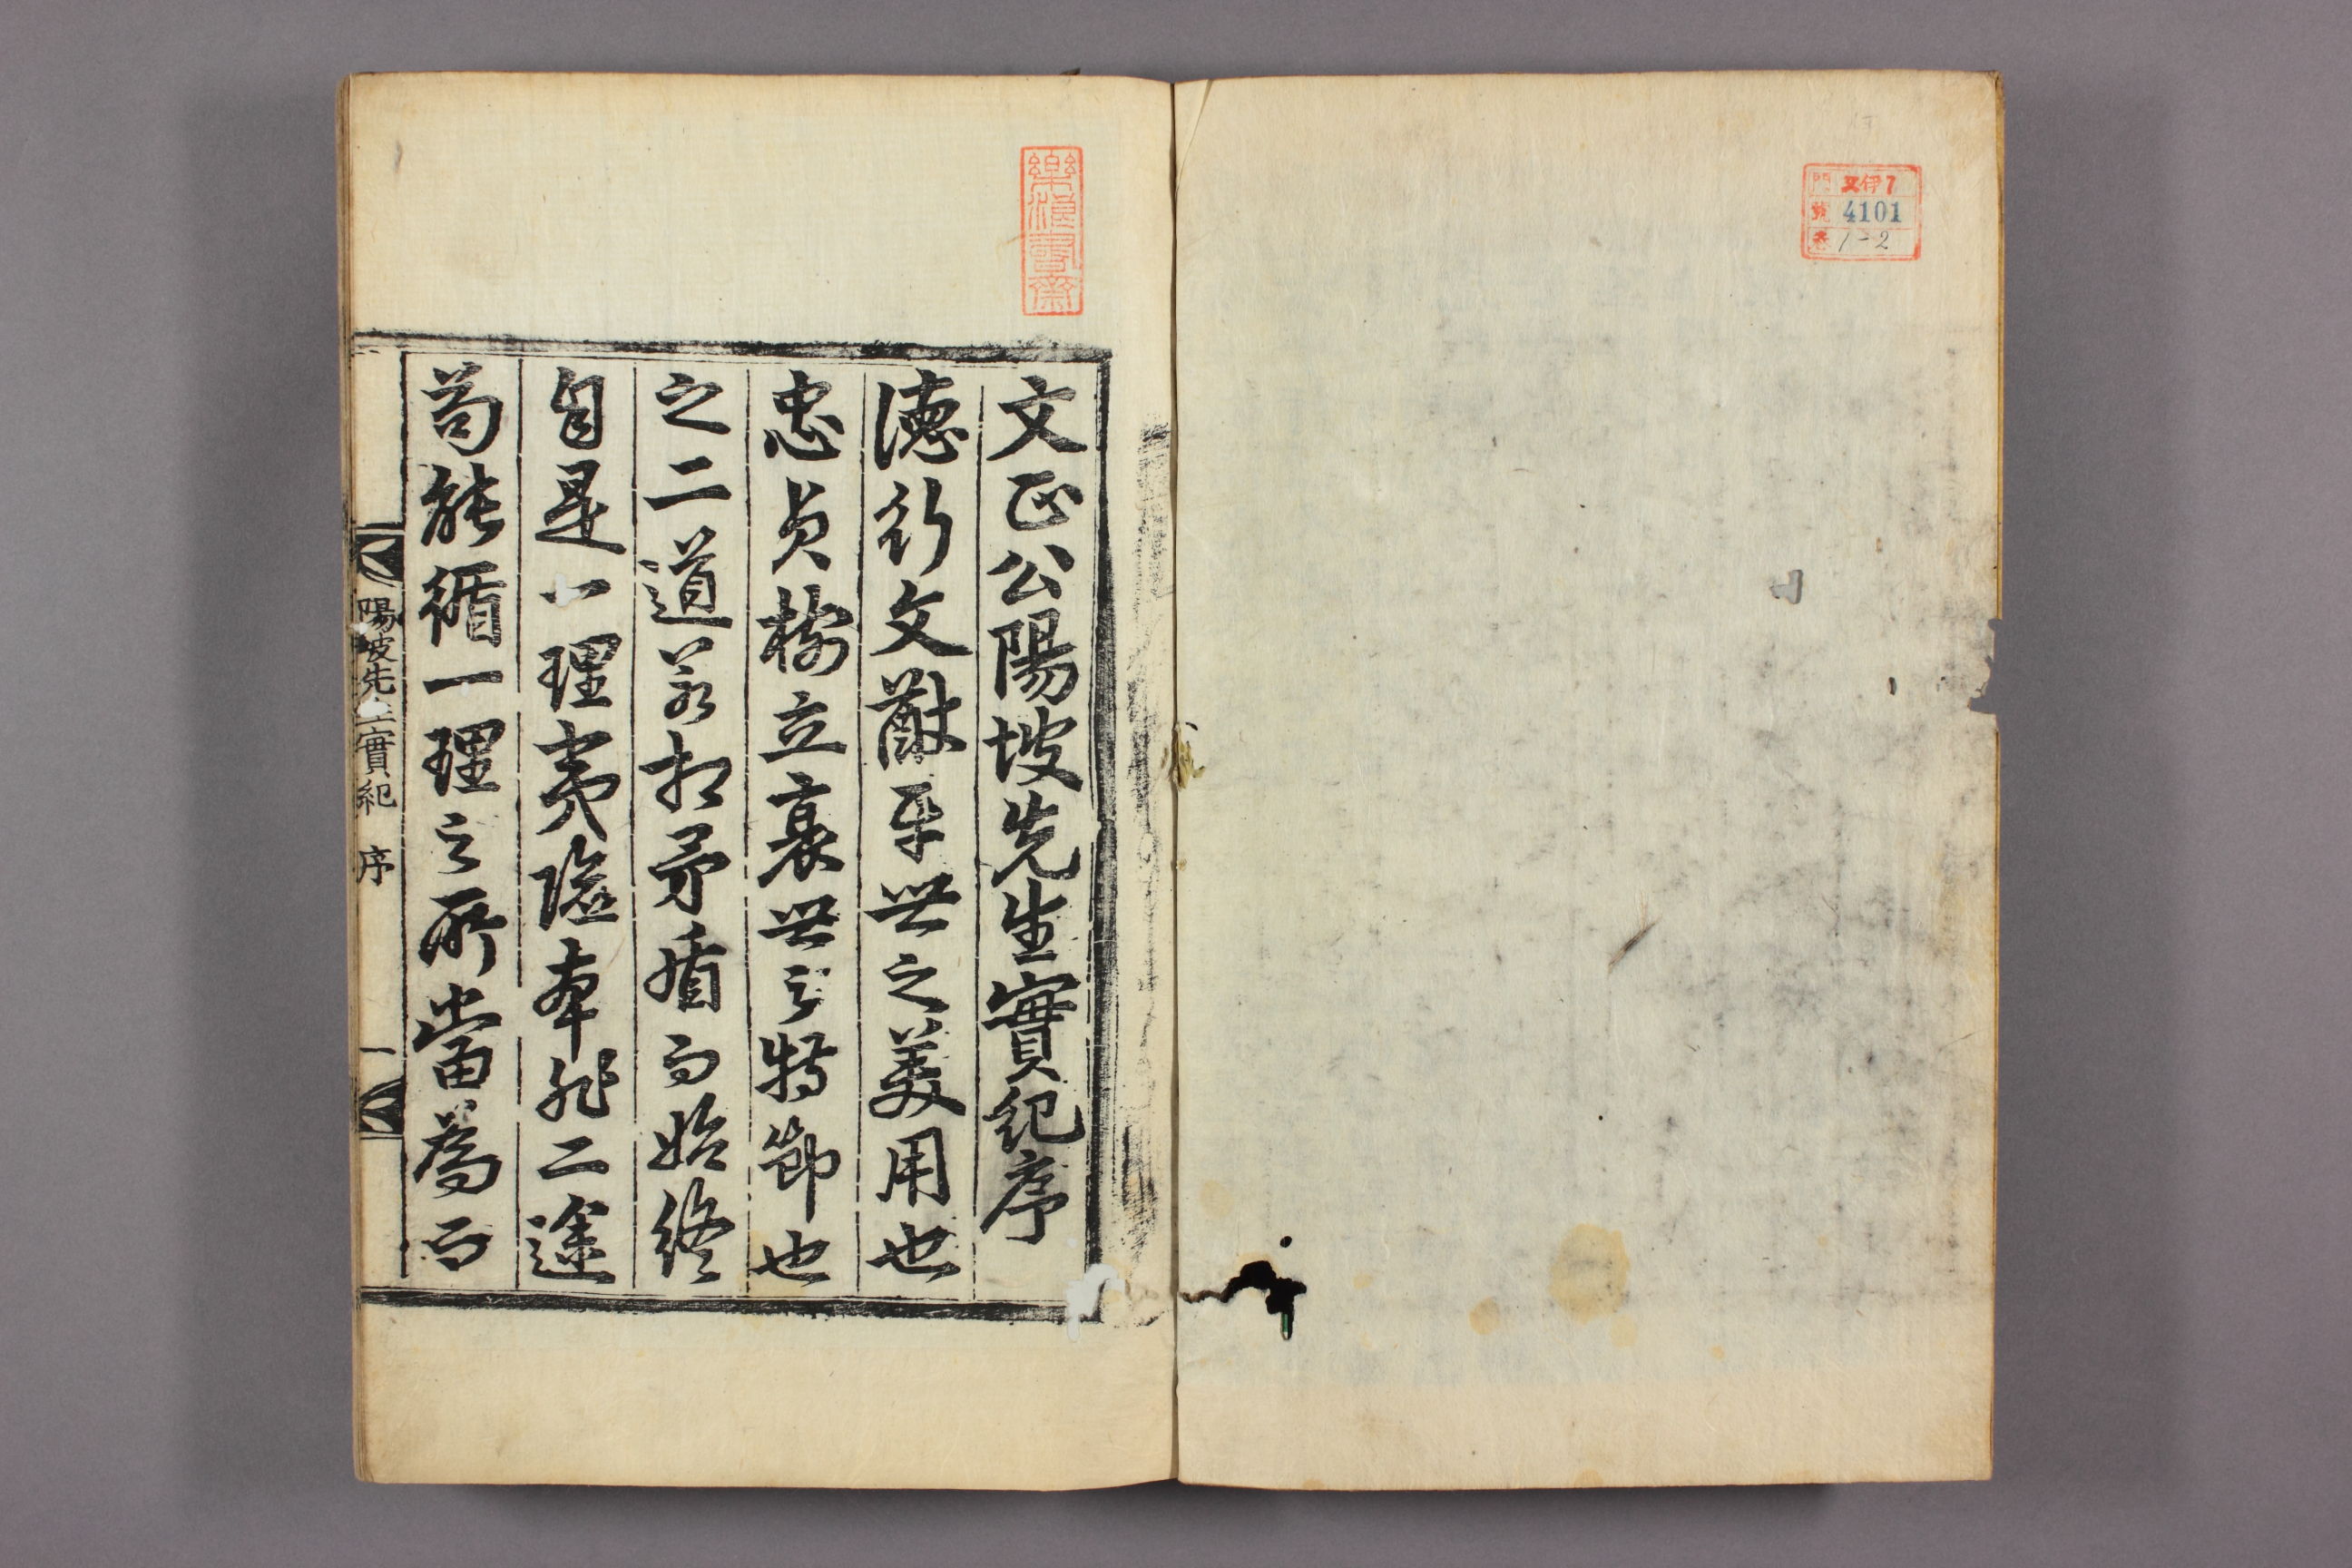 門 又伊7
號 4101
卷 1-2
樂浪書齋
文正公陽坡先生實紀序
德行文猷平世之美用也
忠貞樹立衰世之特節也
之二道若相矛盾而始終
自是一理夷險本非二途
苟能循一理之所當爲而
陽坡先生實紀 序 一